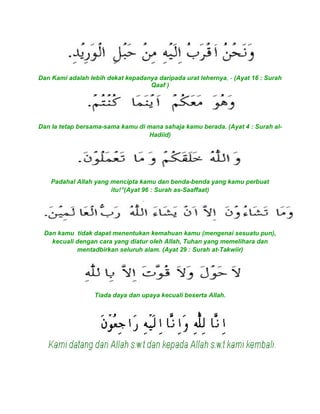 وَنَحْنُ اَقْرَبُ اِلَيْهِ مِنْ حَبْلِ الْوَرِيْدِ.
Dan Kami adalah lebih dekat kepadanya daripada urat lehernya, - (Ayat 16 : Surah
Qaaf )
وَهُوَ مَعَكُمْ اَيْنَمَا كُنْتُمْ.
Dan Ia tetap bersama-sama kamu di mana sahaja kamu berada. (Ayat 4 : Surah al-
Hadiid)
وَ اللهُ خَلَقَكُمْ وَ مَا تَعْمَلُوْنَ.
Padahal Allah yang mencipta kamu dan benda-benda yang kamu perbuat
itu!"(Ayat 96 : Surah as-Saaffaat)
وَمَا تَشَاءُوْنَ اِلاَّ اَنْ يَشَاءَ اللهُ رَبُّ الْعَالَمِيْنَ.
Dan kamu tidak dapat menentukan kemahuan kamu (mengenai sesuatu pun),
kecuali dengan cara yang diatur oleh Allah, Tuhan yang memelihara dan
mentadbirkan seluruh alam. (Ayat 29 : Surah at-Takwiir)
لاَ حَوْلَ وَلاَ قُوَّتَ اِلاَّ بِا للهِ
Tiada daya dan upaya kecuali beserta Allah.
اِنَّا لِلّٰهِ وَاِنَّا اِلَيْهِ رَاجِعُوْنَ
Kami datang dari Allah s.w.t dan kepada Allah s.w.t kami kembali.